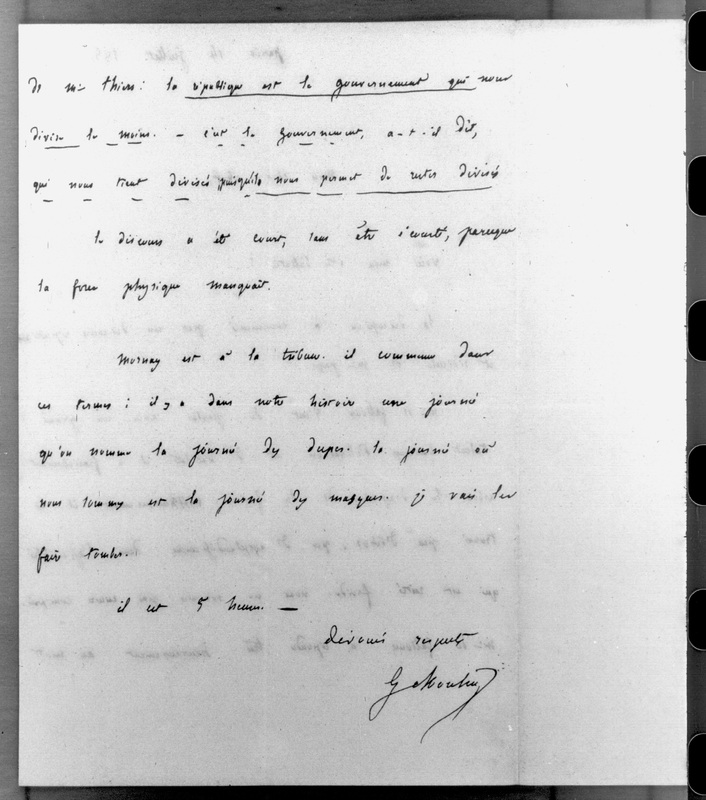 de mr thiers : la république est le gouvernement qui nous
divise le moins. — c'est le gouvernement, a-t-il dit,
qui nous tient divisés puisqu'il nous permet de rester divisés
le discours a été court, sans être écourté, parceque
la force physique manquait.
Mornay est à la tribune. il commence dans
ces termes : il y a dans notre histoire une journé
qu'on nomme la journé des dupes. la journé où
nous sommes est la journé des masques. je vais les
faire tomber.
il est 5 heures. —
dévoués respects